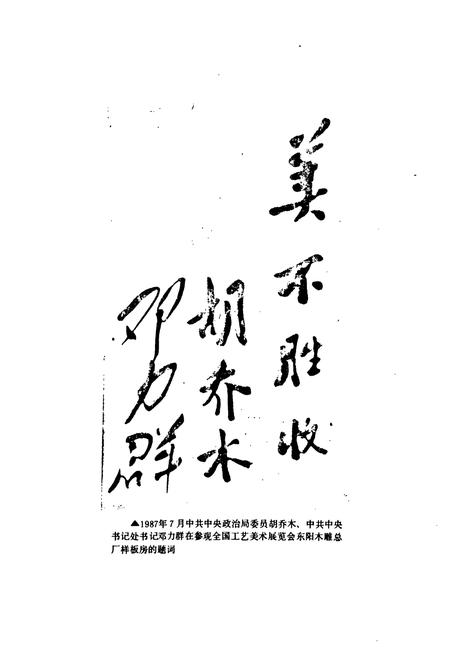 美不胜收
胡乔木
邓力群
▲1987年7月中共中央政治局委员胡乔木、中共中央
书记处书记邓力群在参观全国工艺美术展览会东阳木雕总
厂样板房的题词